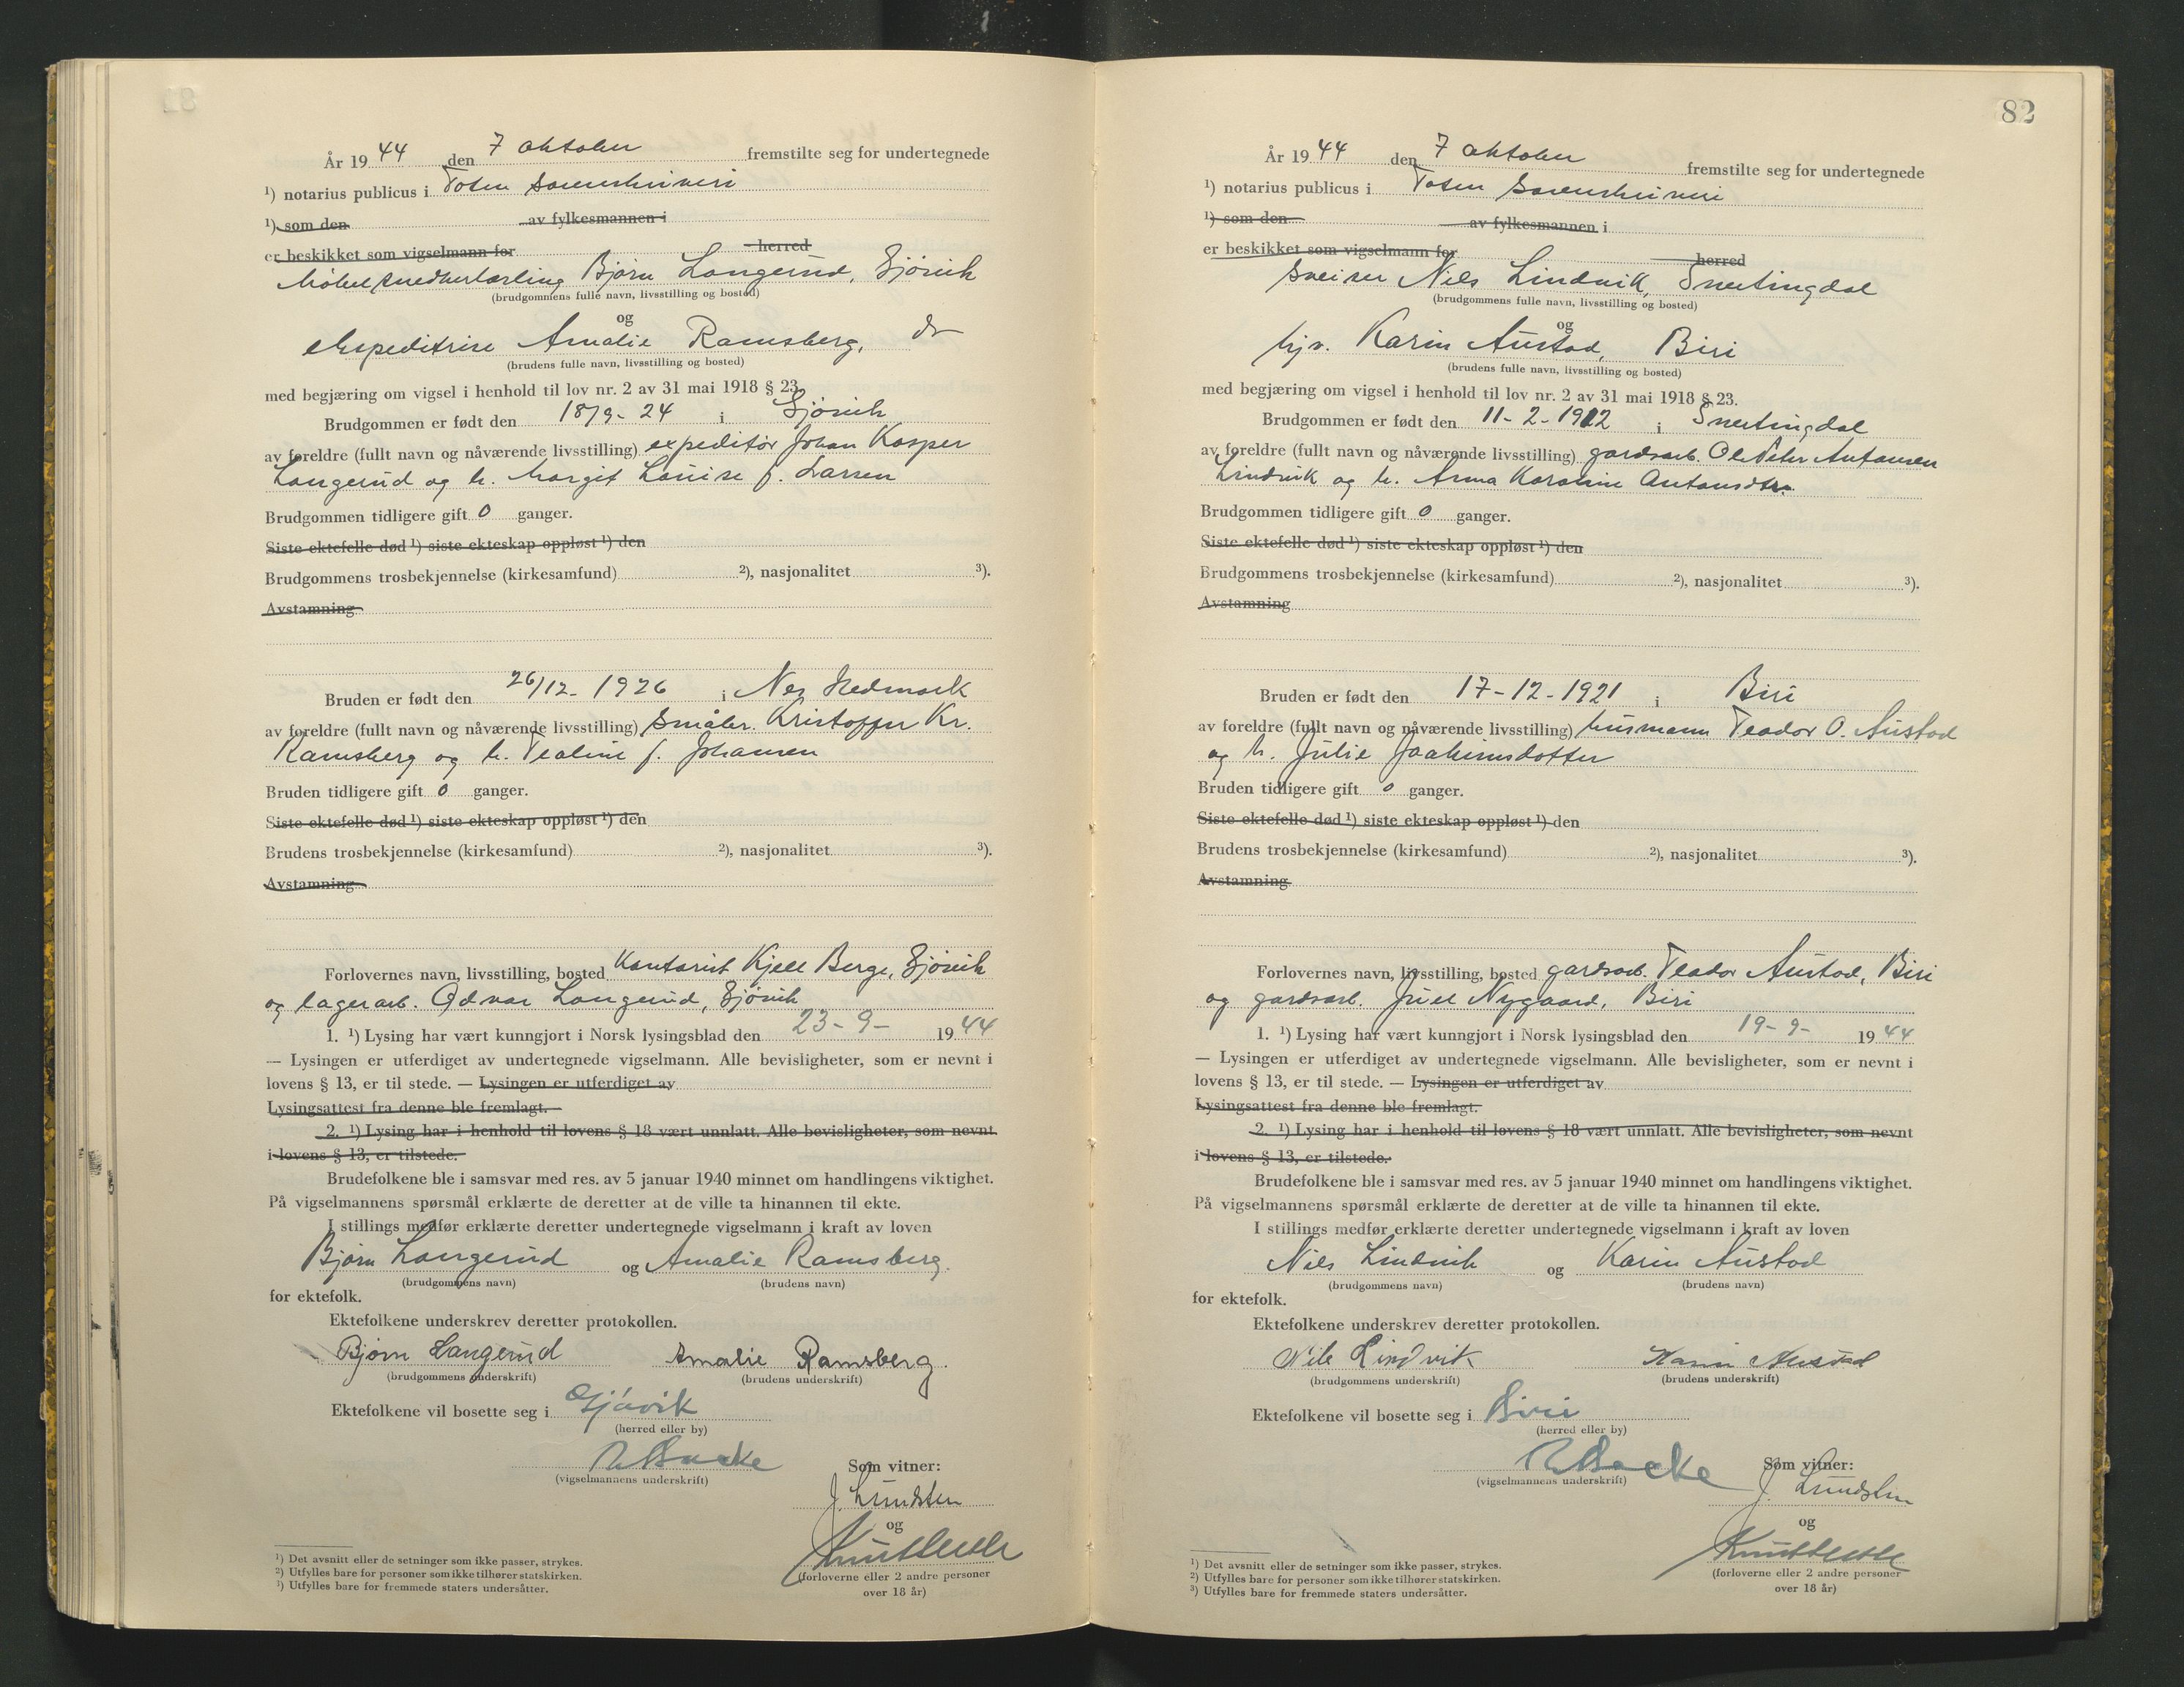 År 19 44 den 7 oktober fremstilte seg for undertegnede
¹) notarius publicus i Toten sorenskriveri
¹) som den av fylkesmannen i
er beskikket som vigselmann for herred
Møbelsnedkerlærling Bjørn Langerud, Gjøvik
(brudgommens fulle navn, livsstilling og bosted)
og
ekspeditrise Amalie Ramsberg, do
(brudens fulle navn, livsstilling og bosted)
med begjæring om vigsel i henhold til lov nr. 2 av 31 mai 1918 § 23.
Brudgommen er født den 18/9- 24 i Gjøvik
av foreldre (fullt navn og nåværende livsstilling) expeditør Johan Kasper
Langerud og h. Margit Louise f. Larsen
Brudgommen tidligere gift 0 ganger.
Siste ektefelle død ¹) siste ekteskap oppløst ¹) den
Brudgommens trosbekjennelse (kirkesamfund) ²), nasjonalitet ³).
Avstamning
Bruden er født den 26/12- 1926 i Nes Hedmark
av foreldre (fullt navn og nåværende livsstilling) småbr. Kristoffer Kr.
Ramsberg og h. Tealine f. Johansen
Bruden tidligere gift 0 ganger.
Siste ektefelle død ¹) siste ekteskap oppløst ¹) den
Brudens trosbekjennelse (kirkesamfund) ²), nasjonalitet ³).
Avstamning
Forlovernes navn, livsstilling, bosted Kontorist Kjell Berge, Gjøvik
og lagerarb. Odvar Langerud, Gjøvik
1. ¹) Lysing har vært kunngjort i Norsk lysingsblad den 23-9- 19 44
— Lysingen er utferdiget av undertegnede vigselmann. Alle bevisligheter, som er nevnt i
lovens § 13, er til stede. — Lysingen er utferdiget av
Lysingsattest fra denne ble fremlagt.
2. ¹) Lysing har i henhold til lovens § 18 vært unnlatt. Alle bevisligheter, som nevnt
i lovens § 13, er tilstede.
Brudefolkene ble i samsvar med res. av 5 januar 1940 minnet om handlingens viktighet.
På vigselmannens spørsmål erklærte de deretter at de ville ta hinannen til ekte.
I stillings medfør erklærte deretter undertegnede vigselmann i kraft av loven
Bjørn Langerud og Amalie Ramsberg.
(brudgommens navn) (brudens navn)
for ektefolk.
Ektefolkene underskrev deretter protokollen.
Bjørn Langerud Amalie Ramsberg.
(brudgommens underskrift) (brudens underskrift)
Ektefolkene vil bosette seg i Gjøvik
(herred eller by)
(vigselmannens underskrift) Som vitner:
J. Lundsten
og
(forloverne eller 2 andre personer
over 18 år)
¹) Det avsnitt eller de setninger som ikke passer, strykes.
²) Utfylles bare for personer som ikke tilhører statskirken.
³) Utfylles bare for fremmede staters undersåtter.
82
År 19 44 den 7 oktober fremstilte seg for undertegnede
¹) notarius publicus i Toten sorenskriveri
¹) som den av fylkesmannen i
er beskikket som vigselmann for herred
sveiser Nils Lindvik, Snertingdal
(brudgommens fulle navn, livsstilling og bosted)
og
hjv. Karin Austad, Biri
(brudens fulle navn, livsstilling og bosted)
med begjæring om vigsel i henhold til lov nr. 2 av 31 mai 1918 § 23.
Brudgommen er født den 11-2-1912 i Snertingdal
av foreldre (fullt navn og nåværende livsstilling) gardsarb. Ole Peter Antonsen
Lindvik og h. Anna Karoline Antonsdtr.
Brudgommen tidligere gift 0 ganger.
Siste ektefelle død ¹) siste ekteskap oppløst ¹) den
Brudgommens trosbekjennelse (kirkesamfund) ²), nasjonalitet ³).
Avstamning
Bruden er født den 17-12-1921 i Biri
av foreldre (fullt navn og nåværende livsstilling) husmann Teodor O. Austad
og h. Julie Joakimsdotter
Bruden tidligere gift 0 ganger.
Siste ektefelle død ¹) siste ekteskap oppløst ¹) den
Brudens trosbekjennelse (kirkesamfund) ²), nasjonalitet ³).
Avstamning
Forlovernes navn, livsstilling, bosted gardsarb. Teodor Austad, Biri
og gardsarb. Juel Nygaard, Biri
1. ¹) Lysing har vært kunngjort i Norsk lysingsblad den 19-9- 19 44
— Lysingen er utferdiget av undertegnede vigselmann. Alle bevisligheter, som er nevnt i
lovens § 13, er til stede. — Lysingen er utferdiget av
Lysingsattest fra denne ble fremlagt.
2. ¹) Lysing har i henhold til lovens § 18 vært unnlatt. Alle bevisligheter, som nevnt
i lovens § 13, er tilstede.
Brudefolkene ble i samsvar med res. av 5 januar 1940 minnet om handlingens viktighet.
På vigselmannens spørsmål erklærte de deretter at de ville ta hinannen til ekte.
I stillings medfør erklærte deretter undertegnede vigselmann i kraft av loven
Nils Lindvik og Karin Austad
(brudgommens navn) (brudens navn)
for ektefolk.
Ektefolkene underskrev deretter protokollen.
Nils Lindvik Karin Austad
(brudgommens underskrift) (brudens underskrift)
Ektefolkene vil bosette seg i Biri
(herred eller by)
(vigselmannens underskrift) Som vitner:
J. Lundsten
og
(forloverne eller 2 andre personer
over 18 år)
¹) Det avsnitt eller de setninger som ikke passer, strykes.
²) Utfylles bare for personer som ikke tilhører statskirken.
³) Utfylles bare for fremmede staters undersåtter.